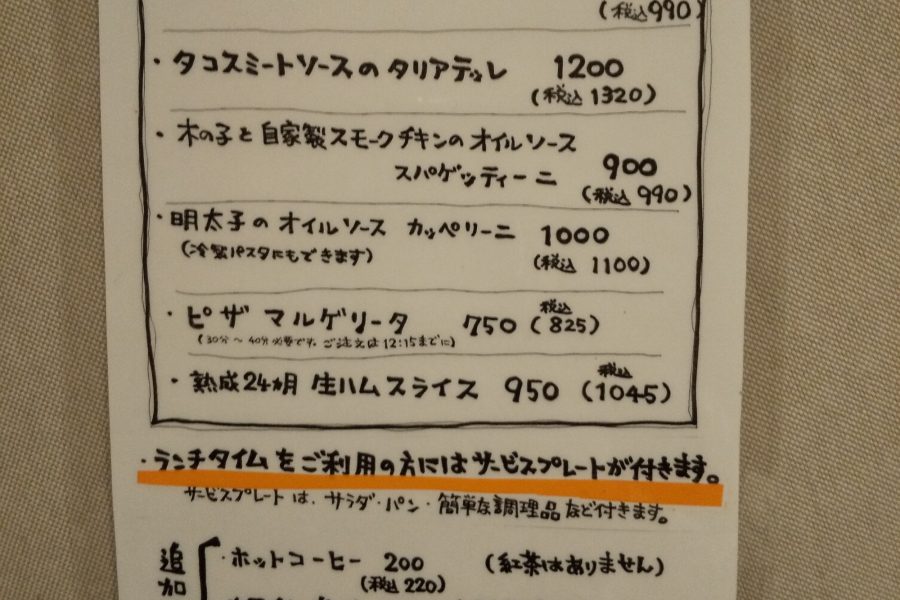 (税込990)
・タコスミートソースの タリアテッレ 1200
(税込 1320)
・木の子と自家製スモークチキンのオイルソース
スパゲッティーニ 900
(税込 990)
・明太子の オイルソース カッペリーニ 1000
(冷製パスタにもできます) (税込 1100)
・ピザ マルゲリータ 750 (税込 825)
(30分〜40分必要です。ご注文は12:15までに)
・熟成24ヵ月 生ハムスライス 950 (税込 1045)
・ランチタイムをご利用の方にはサービスプレートが付きます。
サービスプレートは、サラダ・パン・簡単な調理品など付きます。
追加
・ホットコーヒー 200 (紅茶はありません)
(税込 220)